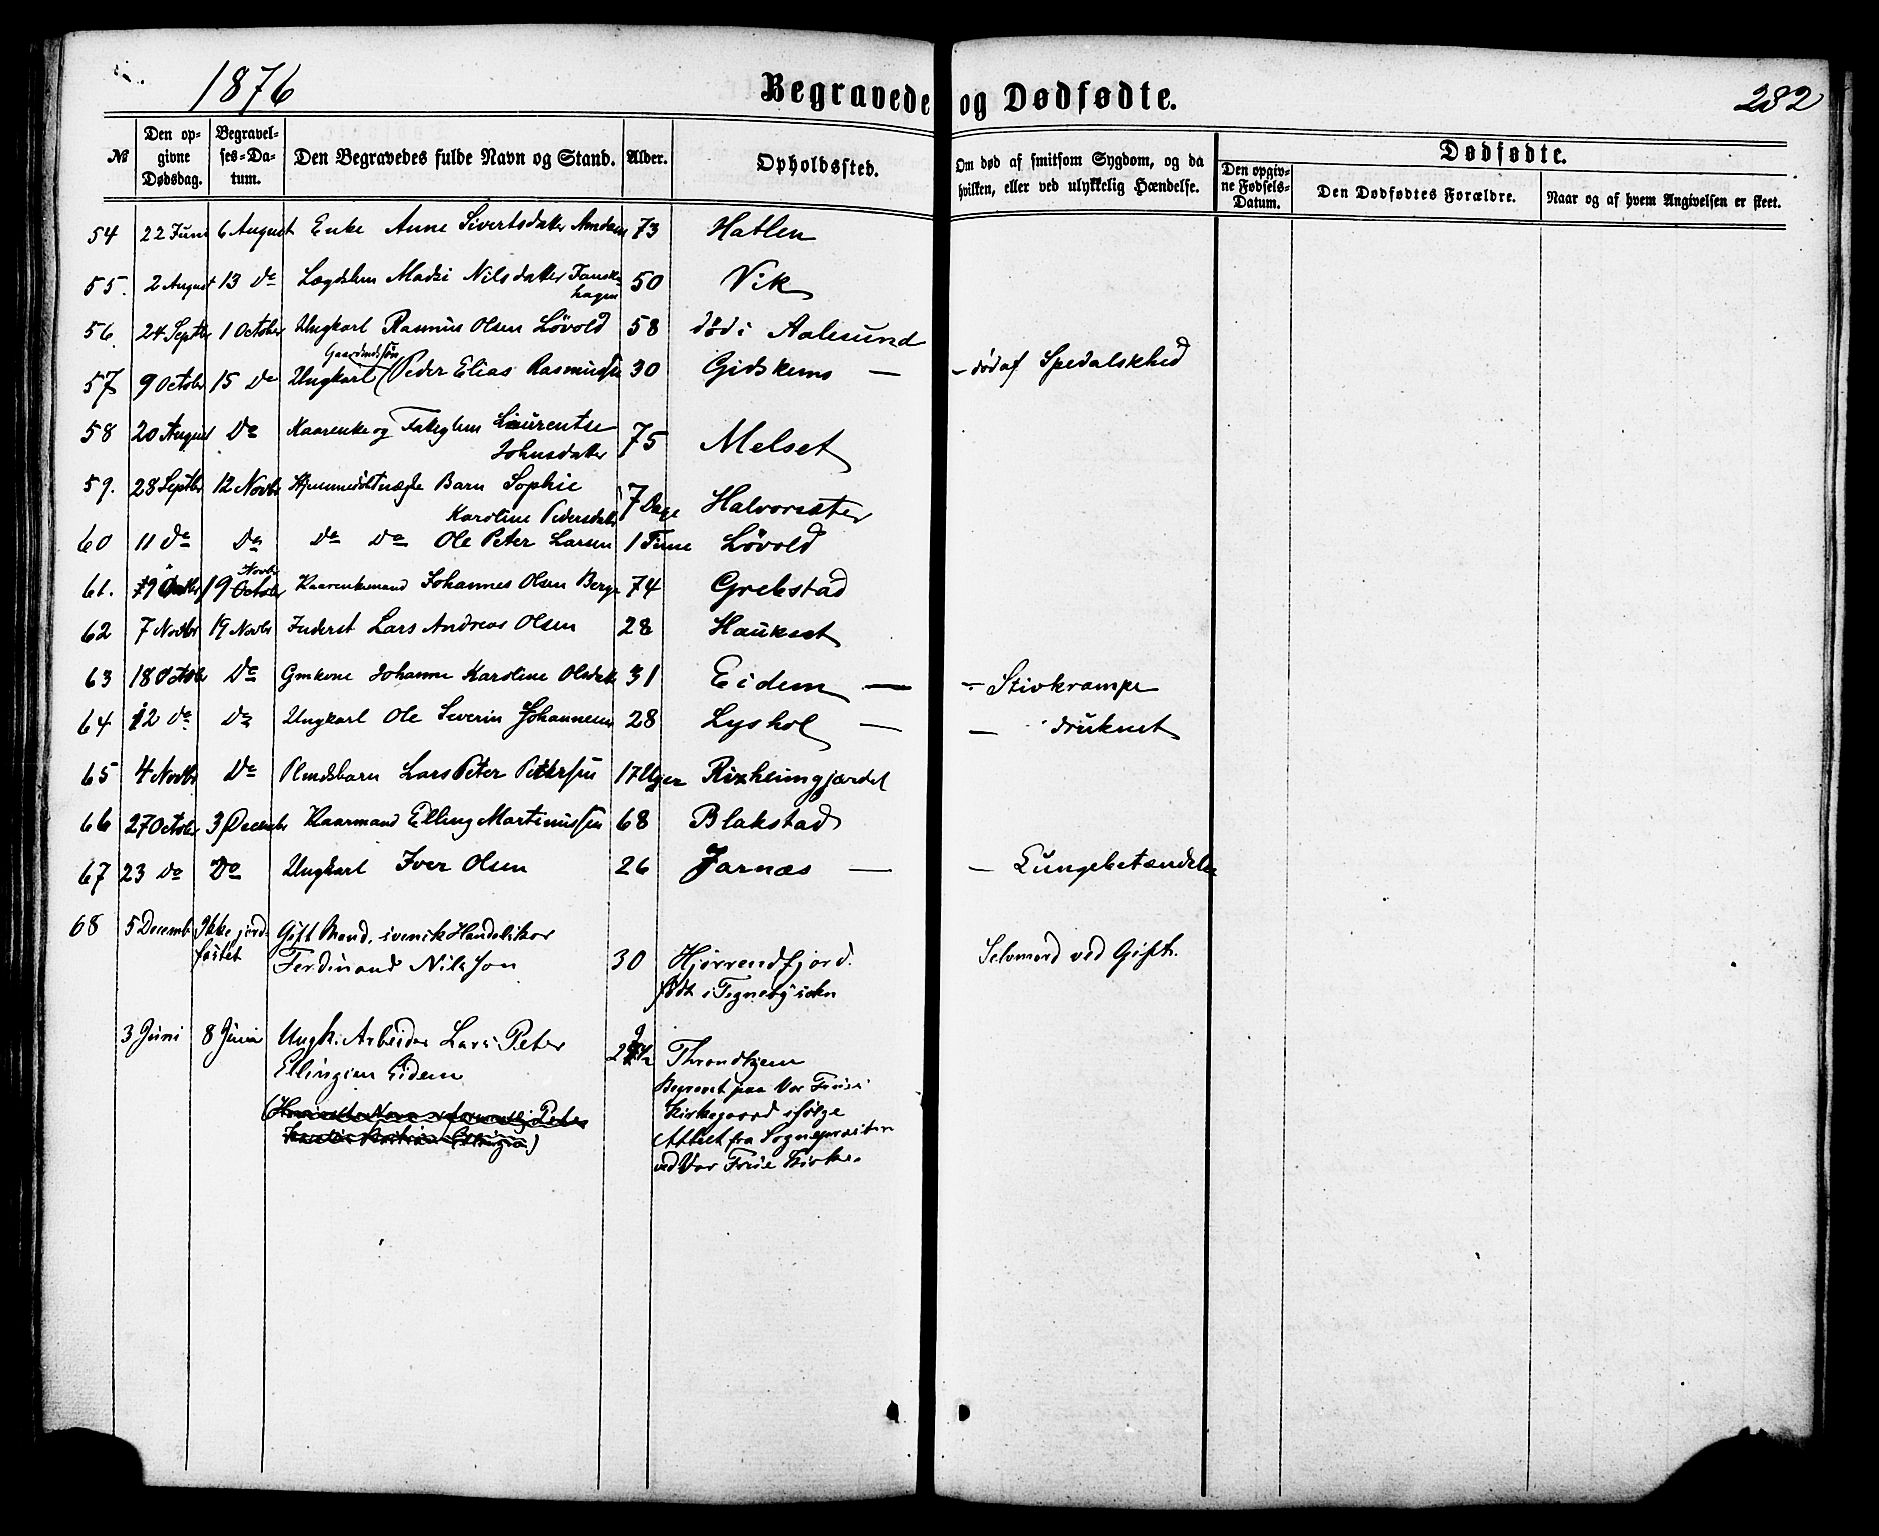 1876 Begravede og Dødfødte. 232
№ Den opgivne Dødsdag. Begravelses-Datum. Den Begravedes fulde Navn og Stand. Alder. Opholdssted. Om død af smitsom Sygdom, og da hvilken, eller ved ulykkelig Hændelse. Dødfødte. Den opgivne Fødsels-Datum. Den Dødfødtes Forældre. Naar og af hvem Angivelsen er skeet.
54 22 Juni 6 August Enke Anne Sivertsdatter Amdam 73 Hatlen
55. 2 August 13 Do Lægdslem Madsi Nilsdatter Fauske- 50 Vik
hagen
56. 24 Septbr 1 October Ungkarl Rasmus Olsen Løvold 58 død i Aalesund
Gaardmdssøn
57 9 Octobr 15 Do Ungkarl (Peder Elias Rasmussen 30 Gidskems — – død af Spedalskhed
58 20 August Do Kaarenke og Fateglem Laurentse
Johnsdatter 75 Melset
59. 28 Septbr 12 Novbr Hjemmedøbt Barn Sophie
Karoline Pedersdatter 7 Dage Halvorsæter
60 11 Do Do Do Do Ole Peter Larsen 1 Time Løvold
Novbr
61. 19 October Kaarenkemand Johannes Olsen Berge 74 Grebstad
62 7 Novbr 19 Novbr Inderst Lars Andreas Olsen 28 Haukset
63 18 Octobr Do Gmkone Johanne Karoline Olsdatter 31 Eidem — – Stivkrampe
64 12 do Do Ungkarl Ole Severin Johannessen 28 Lyshol — – druknet
65 4 Novbr Do Plmdsbarn Lars Peter Petersen 17 Uger Rixheimgjærdet
66 27 Octobr 3 Decembr Kaarmand Elling Martinussen 68 Blakstad
67 23 Do Do Ungkarl Iver Olsen 26 Jarnæs — – Lungebetændelse
68 5 Decembr Ikke jord- Gift Mand, svensk Handelskar
fæstet Ferdinand Nilsson 30 Hjørrendfjord. Selvmord ved Gift.
født i Tegneby
3 Juni 8 Juni Ungk. Arbeider Lars Peter
Ellingsen Eidem Throndhjem
Begravet paa Vor Frues
Kirkegaard ifølge
Attest fra Sognepræsten
ved Vor Frue Kirke.